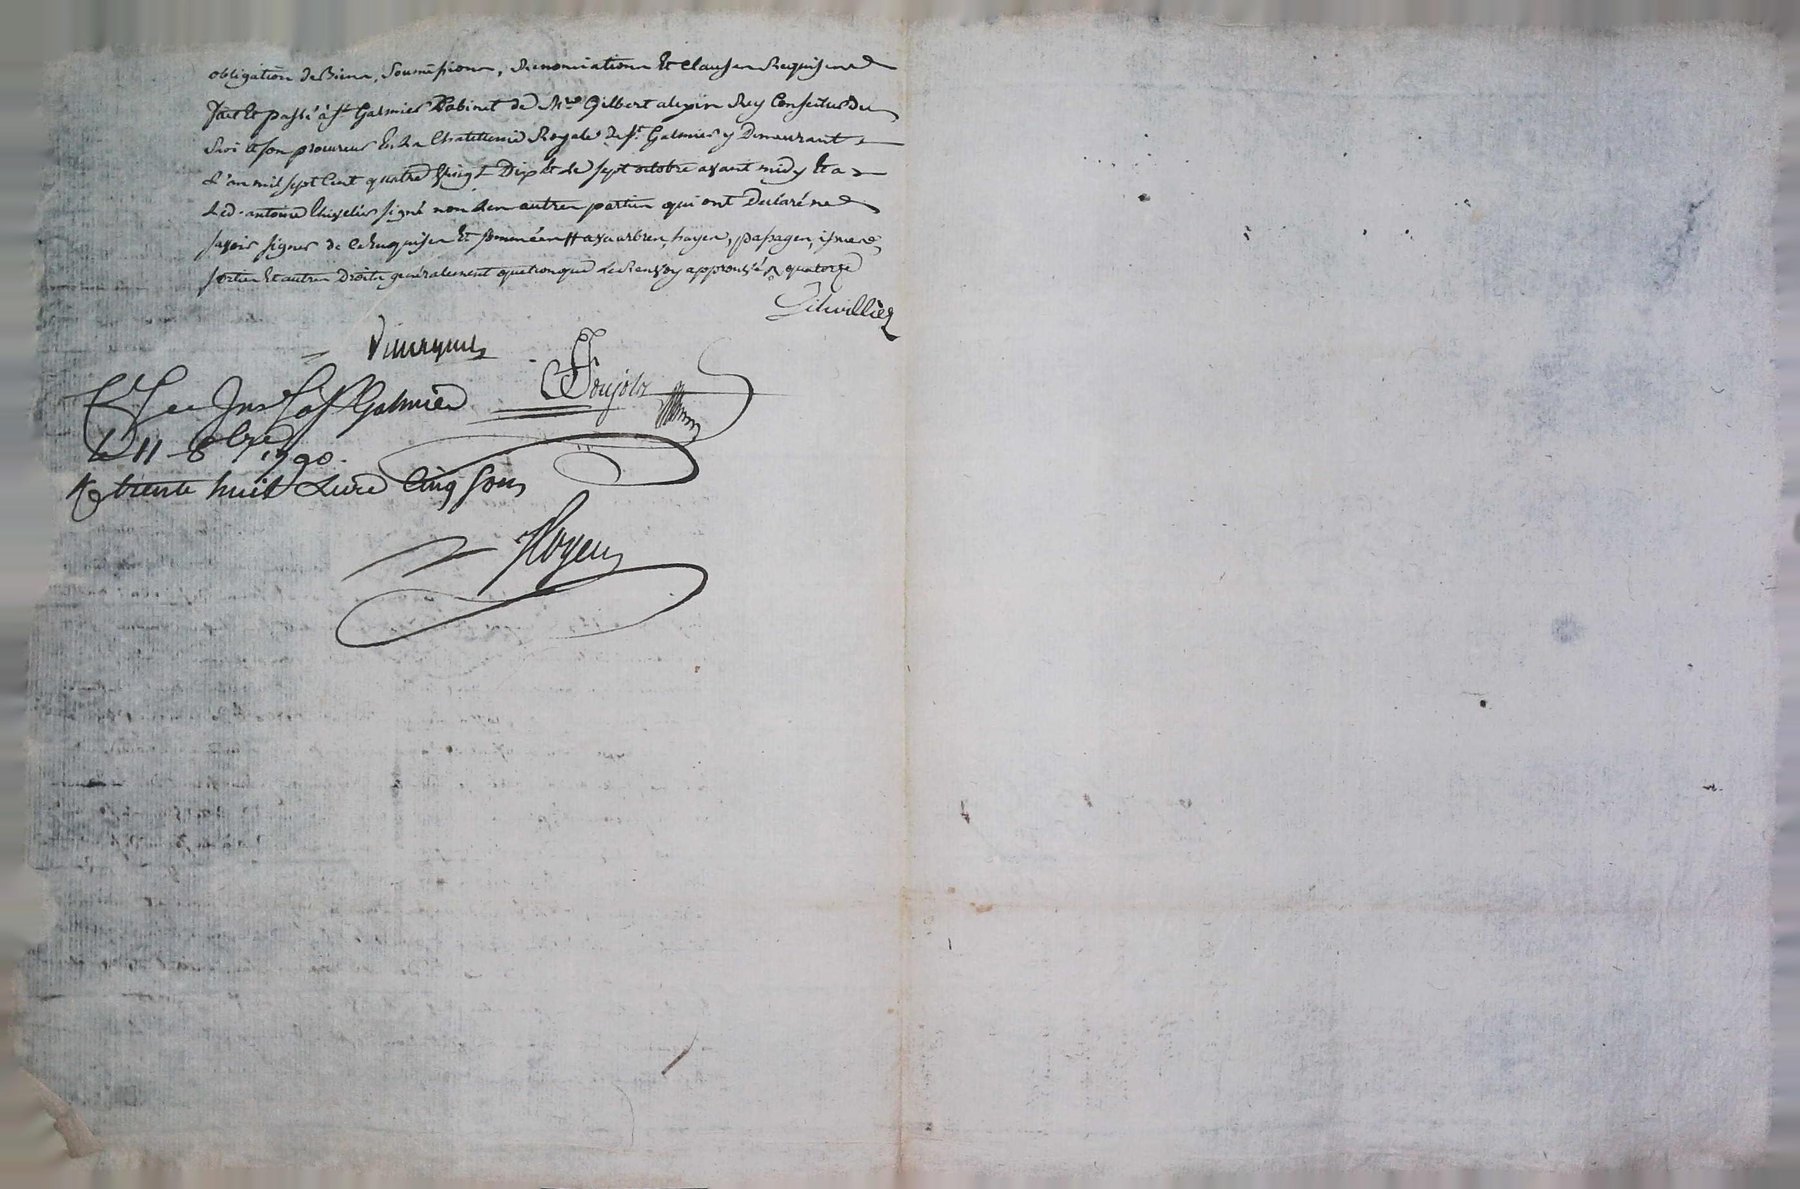 obligation de Biens, Soumissions, Renonciations Et Clauses Requises
fait Et passé à St Galmier Cabinet de Me Gilbert alexis Rey Conseiller du
Roi et son procureur En La Chatellenie Royale de St Galmier y Demeurant
L'an mil sept Cent quatre vingt Dix Et Le sept octobre avant midy Et a
Led. antoine signé non Les autres parties qui ont Declaré ne
savoir signer de Ce Enquises Et sommées # aux arbres, hayes, passages,
sorties Et autres Droits generalement quelconque approuvé quatorze
Vincent
Soujols
St Galmier
Le 11 8bre 1790.
trente huit Livre Cinq Sous